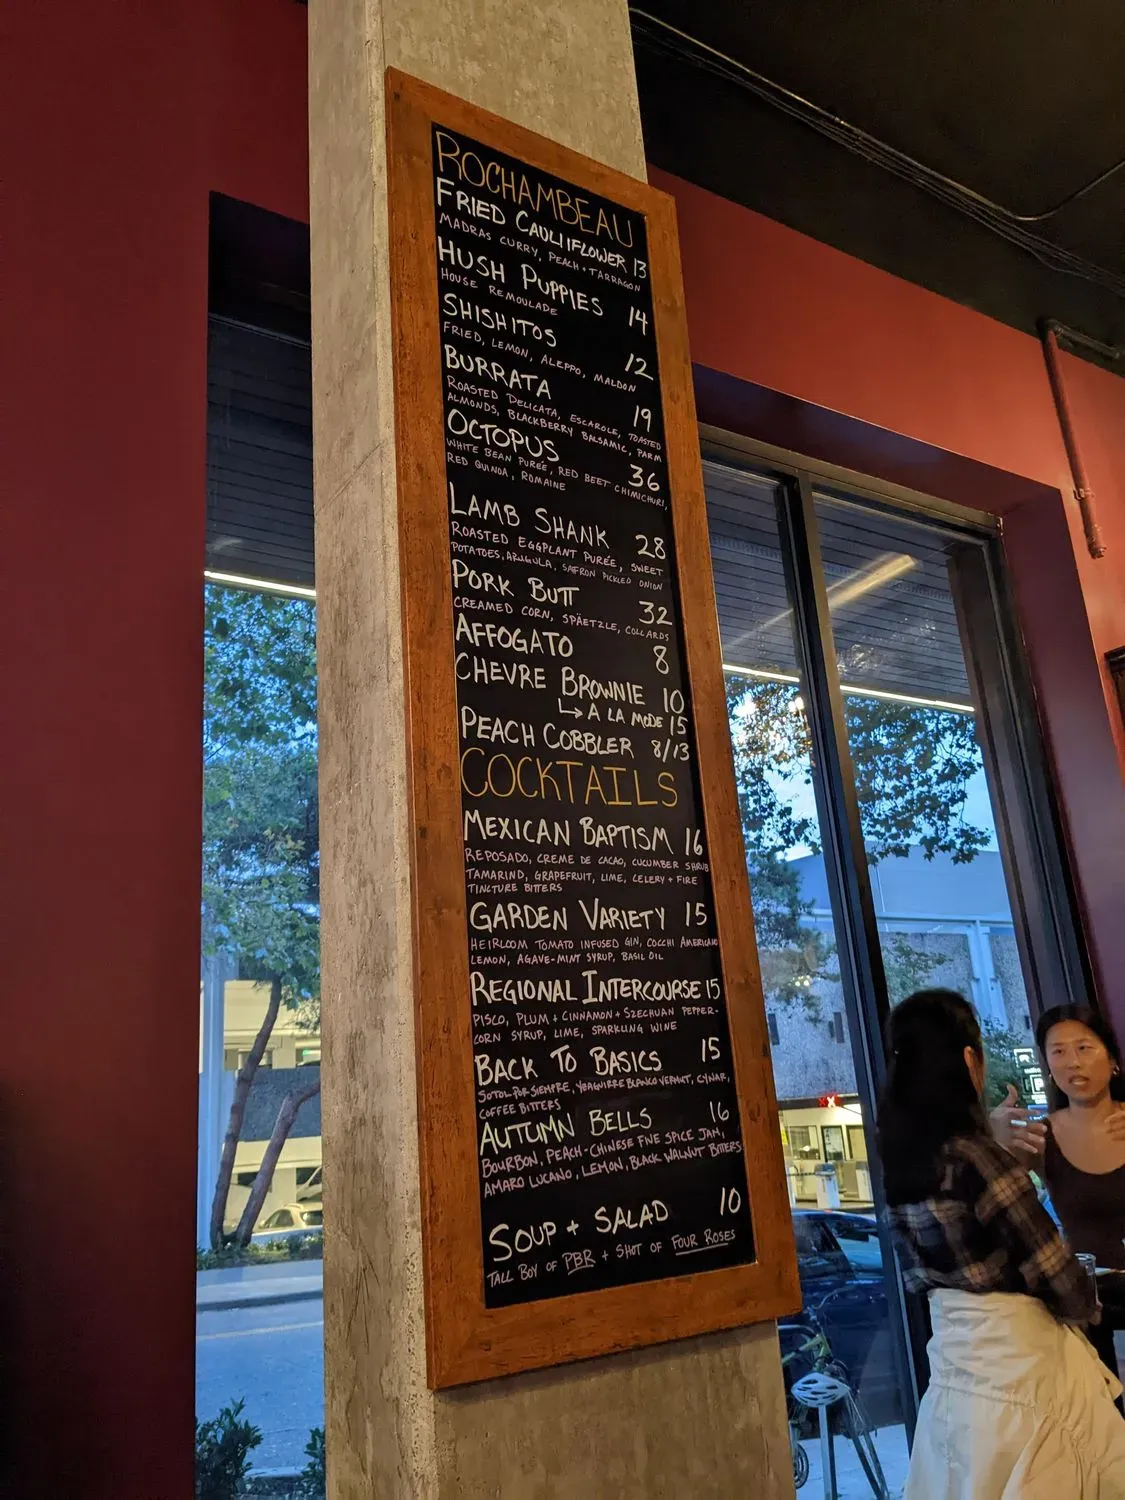 ROCHAMBEAU
FRIED CAULIIFLOWER 13
MADRAS CURRY, PEACH + TARRAGON
HUSH PUPPIES 14
HOUSE REMOULADE
SHISHITOS 12
FRIED, LEMON, ALEPPO, MALDON
BURRATA 19
ROASTED DELICATA, ESCAROLE, TOASTED
ALMONDS, BLACKBERRY BALSAMIC, PARM
OCTOPUS 36
WHITE BEAN PURÉE, RED BEET CHIMICHURI,
RED QUINOA, ROMAINE
LAMB SHANK 28
ROASTED EGGPLANT PURÉE, SWEET
POTATOES, ARUGULA, SAFFRON PICKLED ONION
PORK BUTT 32
CREAMED CORN, SPÄETZLE, COLLARDS
AFFOGATO 8
CHEVRE BROWNIE 10
↳ A LA MODE 15
PEACH COBBLER 8/13
COCKTAILS
MEXICAN BAPTISM 16
REPOSADO, CREME DE CACAO, CUCUMBER SHRUB
TAMARIND, GRAPEFRUIT, LIME, CELERY + FIRE
TINCTURE BITTERS
GARDEN VARIETY 15
HEIRLOOM TOMATO INFUSED GIN, COCCHI AMERICANO
LEMON, AGAVE-MINT SYRUP, BASIL OIL
REGIONAL INTERCOURSE 15
PISCO, PLUM + CINNAMON + SZECHUAN PEPPER-
CORN SYRUP, LIME, SPARKLING WINE
BACK TO BASICS 15
SOTOL POR SIEMPRE, YBAGUIRRE BLANCO VERMUT, CYNAR,
COFFEE BITTERS
AUTUMN BELLS 16
BOURBON, PEACH-CHINESE FIVE SPICE JAM,
AMARO LUCANO, LEMON, BLACK WALNUT BITTERS
SOUP + SALAD 10
TALL BOY OF PBR + SHOT OF FOUR ROSES